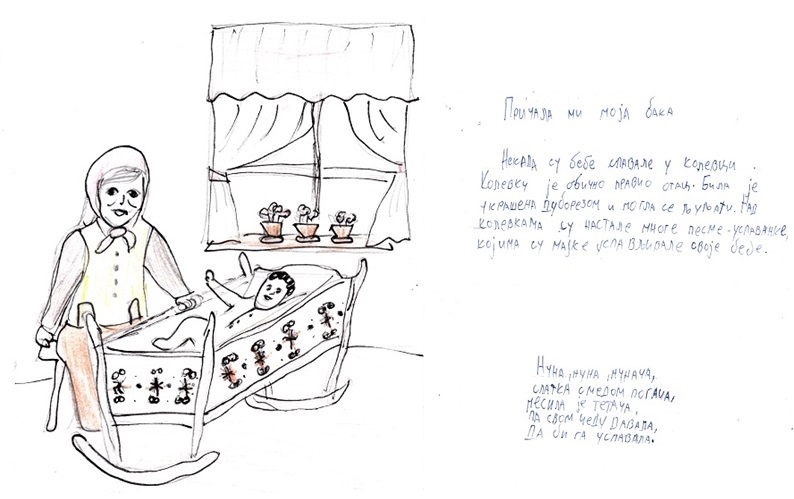 Причала ми моја бака
Некада су бебе спавале у колевци.
Колевку је обично правио отац. Била је
украшена дуборезом и могла се љуљати. Над
колевкама су настале многе песме-успаванке,
којима су мајке успављивале своје бебе.
Нуна, нуна, нунача,
слатка с медом погача,
несила је тетача,
па свом чеду давала,
да би га успавала.